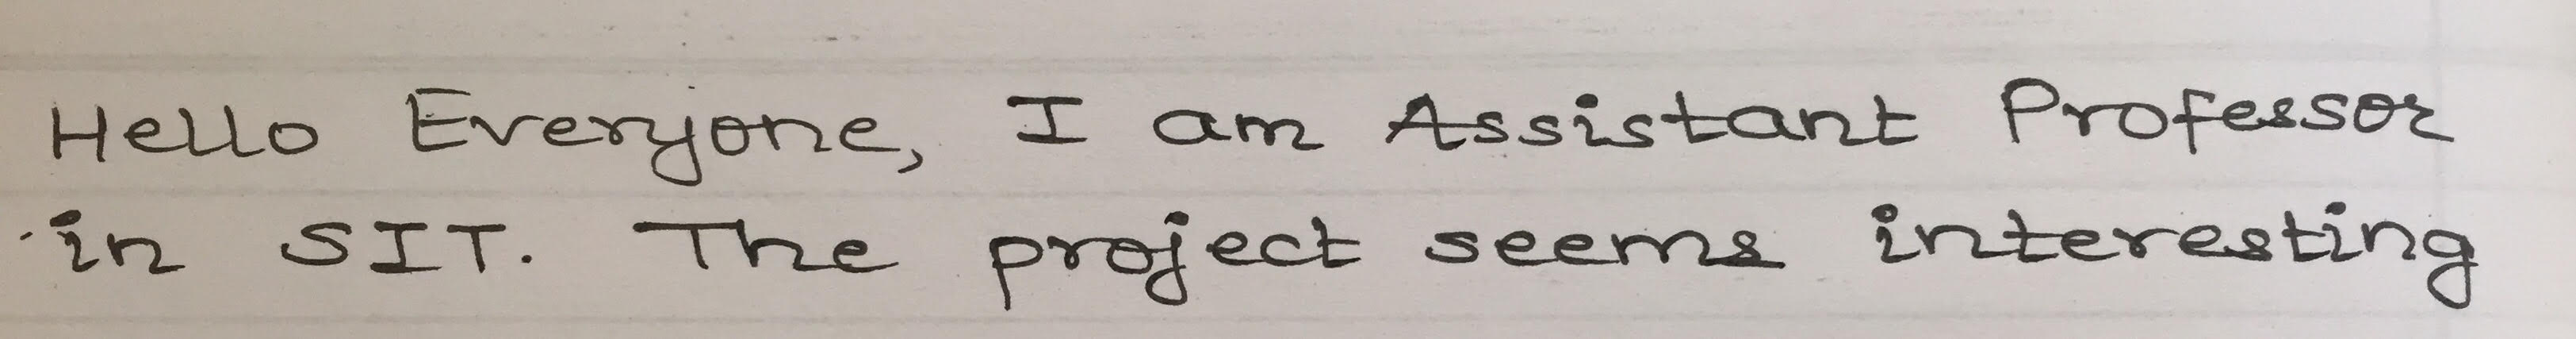 Hello Everyone, I am Assistant Professor
in SIT. The project seems interesting